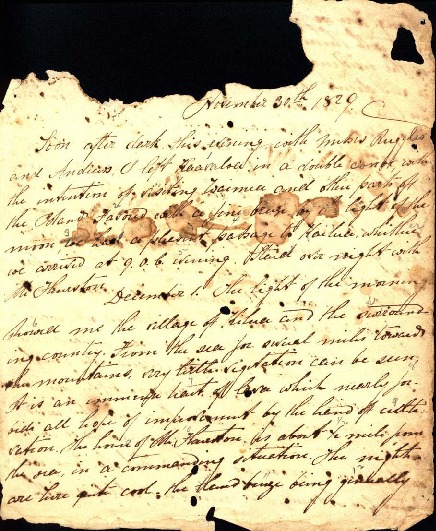 November 30th 1829.
Soon after dark this evening with Messrs Ruggles
and Andrews I left Kaavaloa in a double canoe with
the intention of visiting Waimea and other parts of
the Island. Favored with a fine breeze, by the light of the
moon we had a pleasant passage to Kailua, whither
we arrived at 9 o.c. evening. Staid over night with
Mr Thurston.
December 1. The light of the morning
showed me the village of Kailua and the surround-
ing country. From the sea for several miles towards
the mountains, very little vegetation can be seen,
It is an immense tract of lava which nearly for-
bids all hope of improvement by the hand of culti-
vation. The house of Mr Thurston is about ¾ mile from
the sea, in a commanding situation. The nights
are here quite cool, the land breeze being generally